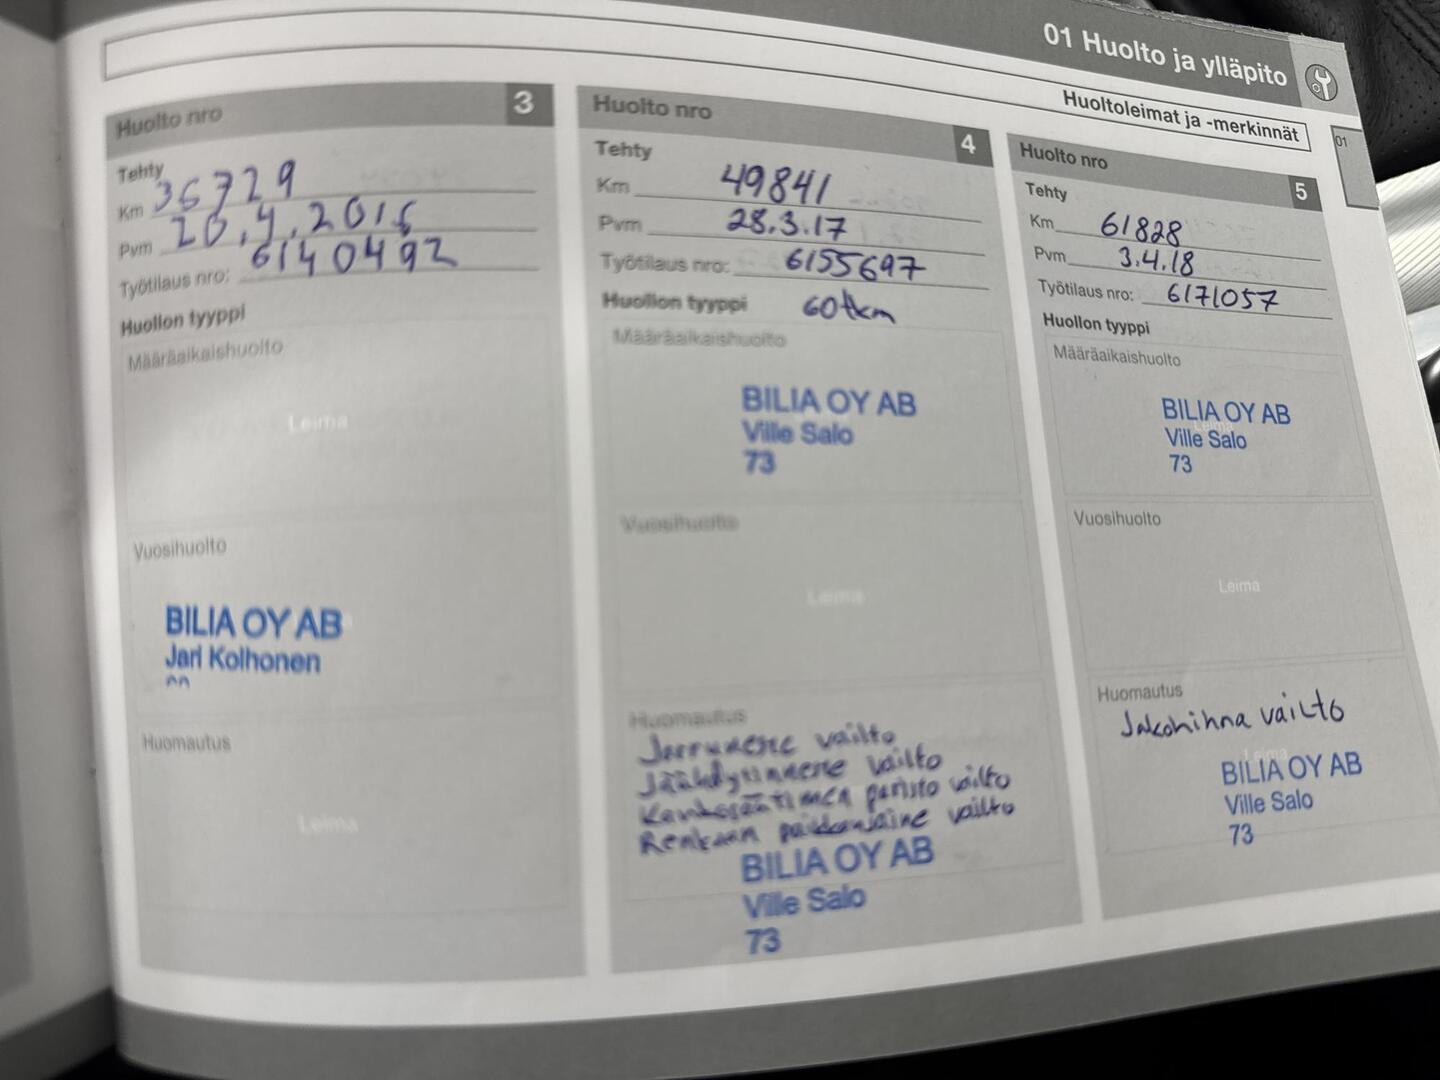 01 Huolto ja ylläpito
Huoltoleimat ja -merkinnät
01
Huolto nro 3
Tehty
Km 36729
Pvm 20.4.2016
Työtilaus nro: 6140492
Huollon tyyppi
Määräaikaishuolto
Leima
Vuosihuolto
BILIA OY AB
Jari Kolhonen
Huomautus
Leima
Huolto nro 4
Tehty
Km 49841
Pvm 28.3.17
Työtilaus nro: 6155697
Huollon tyyppi 60tkm
Määräaikaishuolto
BILIA OY AB
Ville Salo
73
Vuosihuolto
Leima
Huomautus
Jarruneste vaihto
Jäähdytinneste vaihto
Kaukosäätimen paristo vaihto
Renkaan paikkausaine vaihto
BILIA OY AB
Ville Salo
73
Huolto nro 5
Tehty
Km 61828
Pvm 3.4.18
Työtilaus nro: 6171057
Huollon tyyppi
Määräaikaishuolto
Leima
BILIA OY AB
Ville Salo
73
Vuosihuolto
Leima
Huomautus
Jakohihna vaihto
Leima
BILIA OY AB
Ville Salo
73